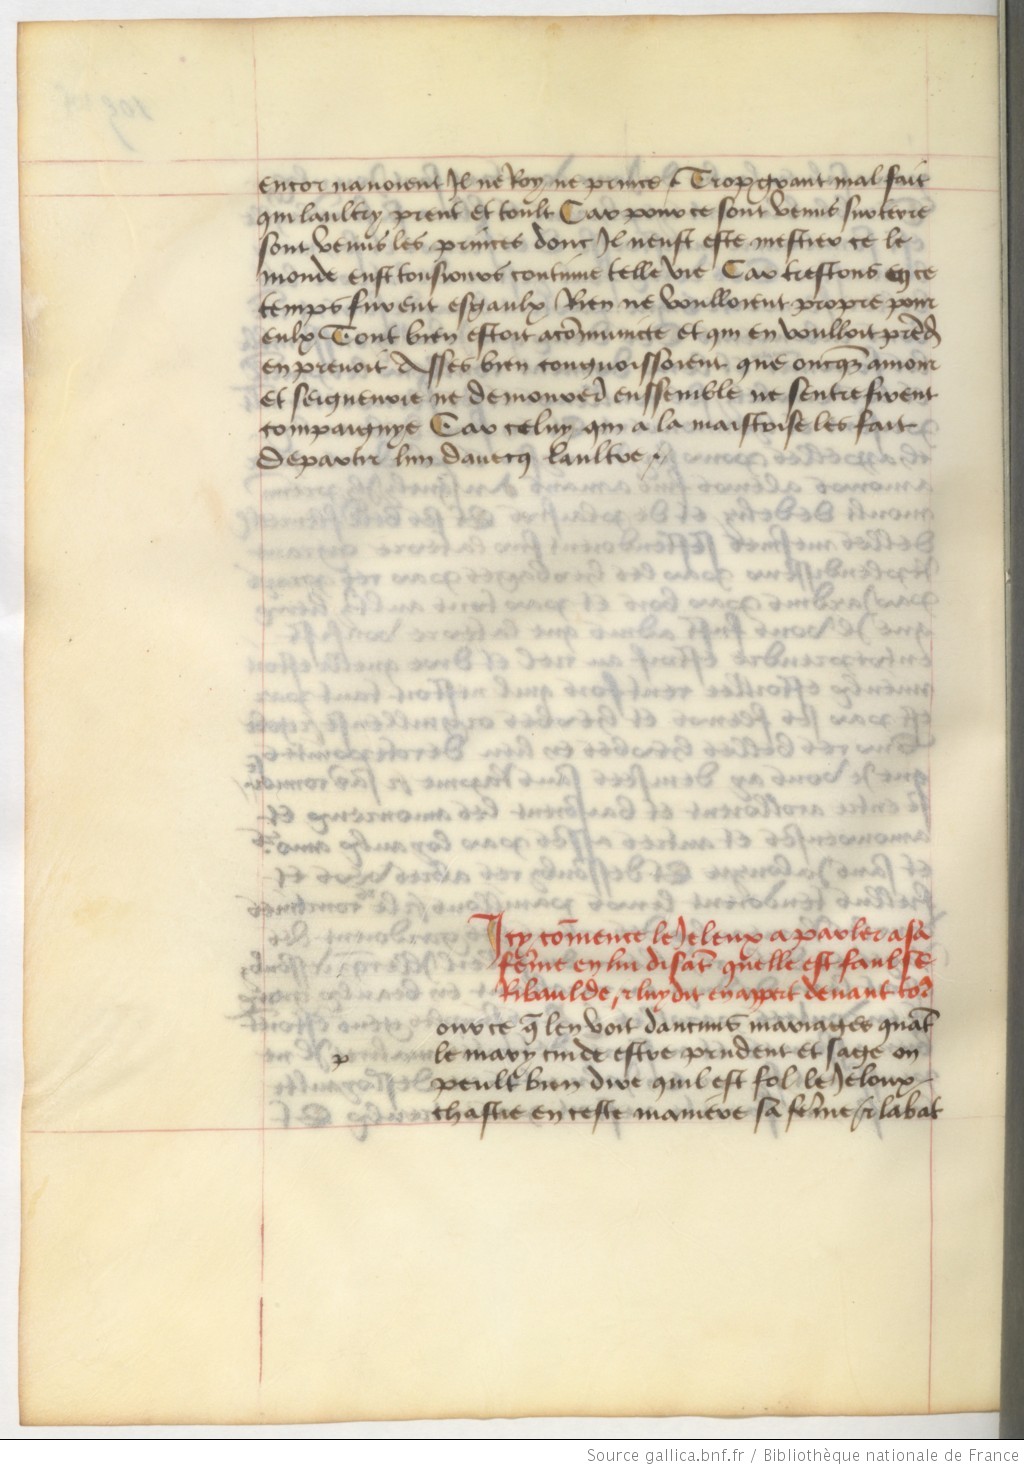 encor navoient Il ne Roy ne prince. Trop grant mal fait
qui laultry prent et toult Car pour ce sont venus sur terre
sont venus les princes donc Il neust este mestier ce le
monde eust tousjours continue telle vie Car trestous en ce
temps furent esgaulx Rien ne voulloient propre pour
eulx Tout bien estoit a cõmuncte et qui en voulloit prẽdr̃
en prenoit Asses bien congnoissoient que oncq̃z amour
et seigneurie ne demourer̃ enssemble ne sentrefirent
compaignye Car celuy qui a la maistrise les fait
departir lun davecq laultre.
Icy cõmence le Jeleux a parler a sa
fẽme en lui disãt quelle est faulse
Ribaulde, & luy dit en appert devant to9
our ce q̃ len voit daucuns mariages quãt
p
le mary cuide estre prudent et sage on
peult bien dire quil est fol le Jeloux
chastie en ceste maniere sa fẽme & la bat
Source gallica.bnf.fr / Bibliothèque nationale de France